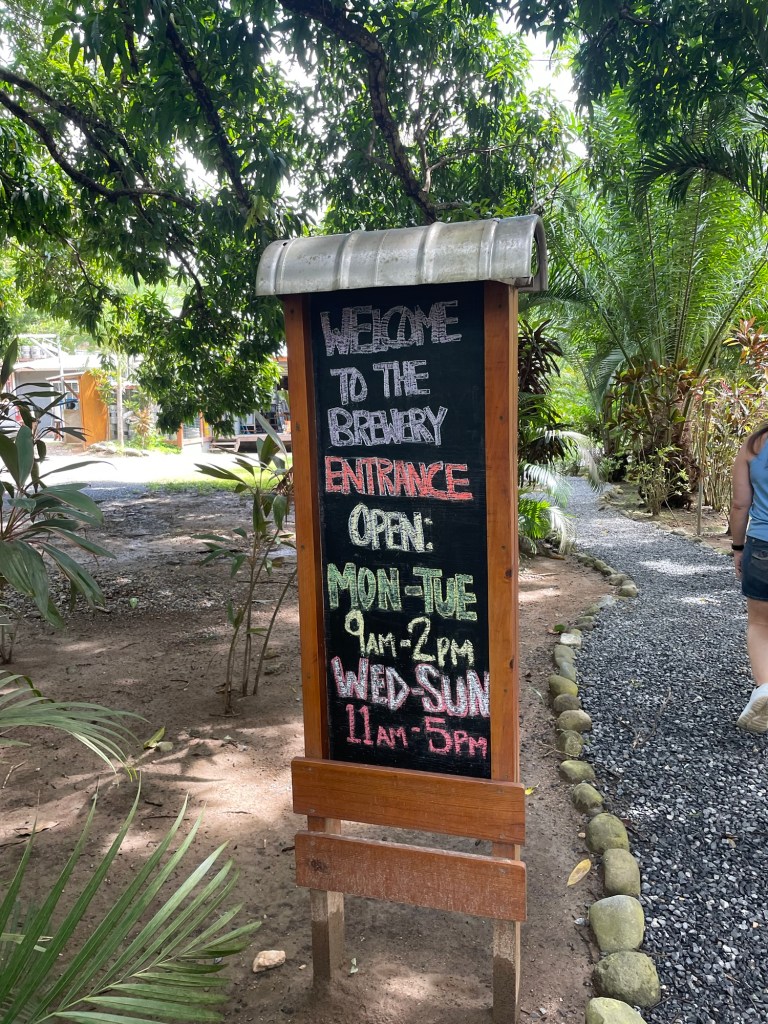 WELCOME
TO THE
BREWERY
ENTRANCE
OPEN:
MON-TUE
9AM-2PM
WED-SUN
11AM-5PM